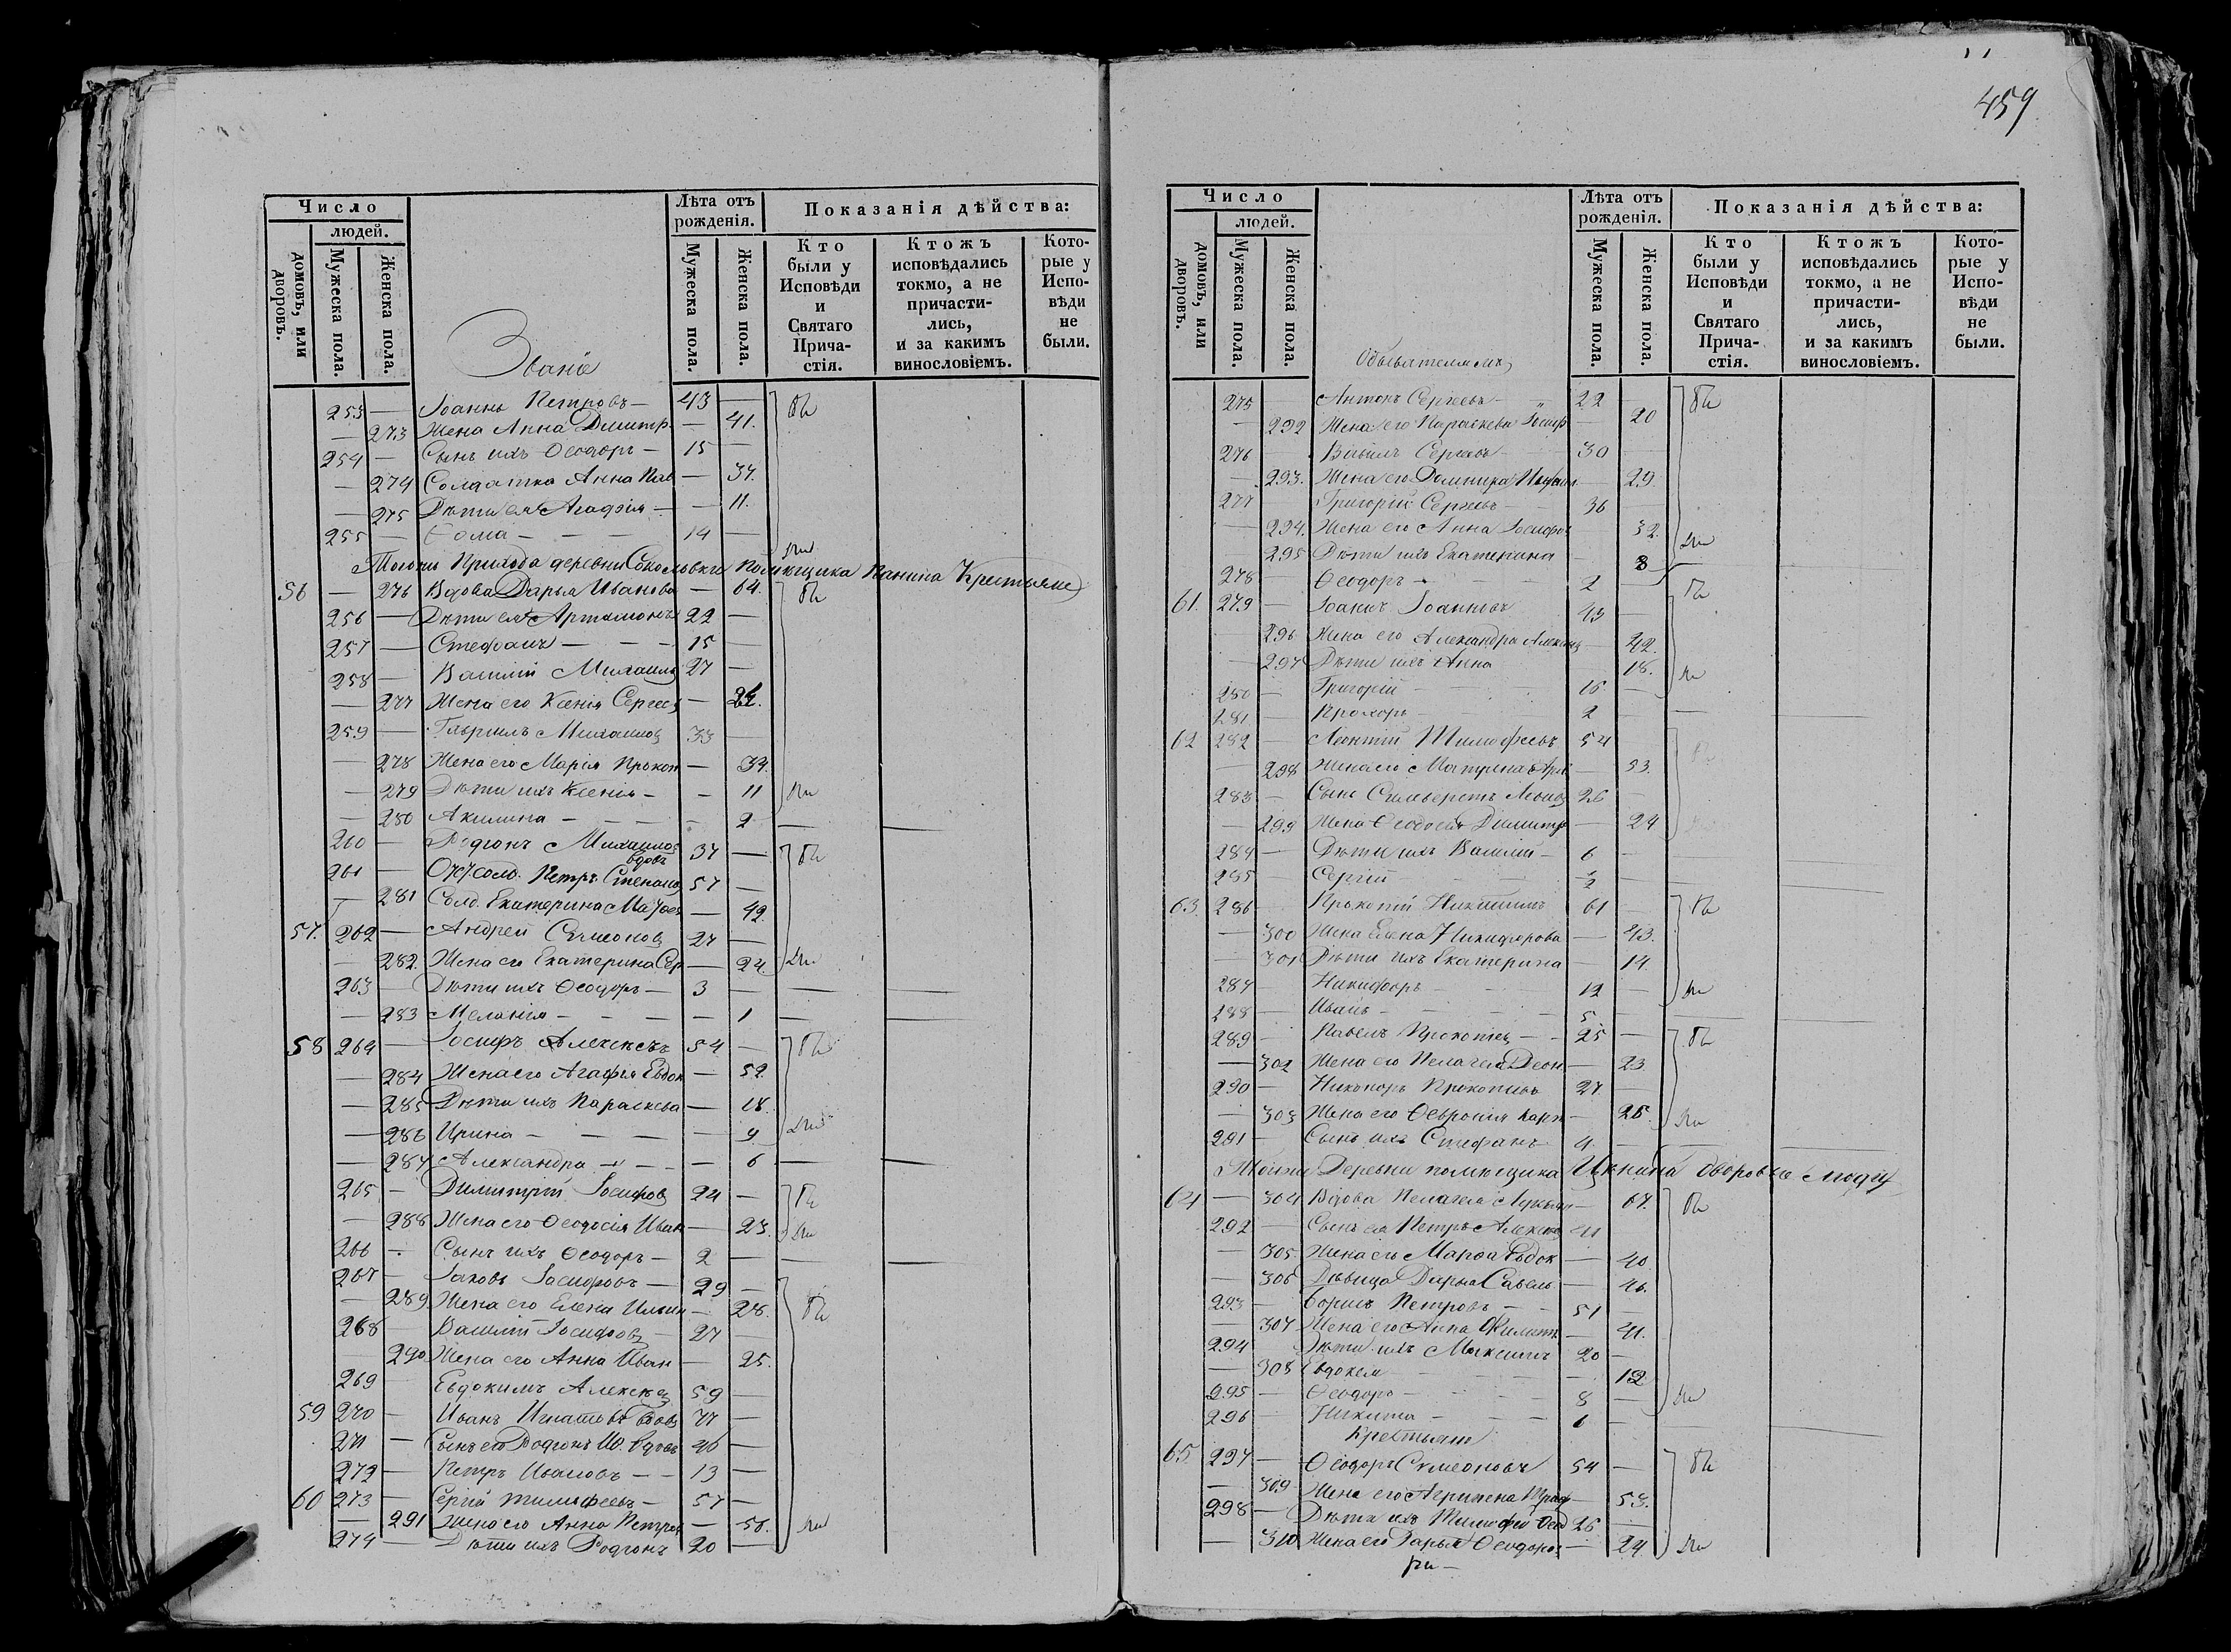 459
Число
людей.
домовъ, или дворовъ.
Мужеска пола.
Женска пола.
Званіе
Лѣта отъ рожденія.
Мужеска пола.
Женска пола.
Показанія дѣйства:
Кто были у Исповѣди и Святаго Причастія.
Ктожъ исповѣдались токмо, а не причастились, и за какимъ винословіемъ.
Которые у Исповѣди не были.
253 — Іоаннъ Петровъ — 43 —
— 273 Жена Анна Димитр. — 41.
254 — Сынъ ихъ Ѳеодоръ — 15 —
— 274 Солдатка Анна Пав — 37.
— 275 Дѣти ея Агафія — — 11.
255 — Ѳома — — — 14 —
Тогожъ Прихода деревни Соколовки помѣщика Панина Крестьяне
56 — 276 Вдова Дарья Иванова — 64.
256 — Дѣти ея Артамонъ 22 —
257 — Стефанъ — — — 15 —
258 — Василій Михаилов 27 —
— 277 Жена его Ксенія Сергеев —
259 — Гавриилъ Михаилов 33 —
— 278 Жена его Марія Прокоп — 34.
— 279 Дѣти ихъ Ксенія — — 11
— 280 Акилина — — — — 2
260 — Родіонъ Михаилов 37 —
261 — Отст. солд. Петръ Степанов вдовъ 57 —
— 281 Солд. Екатерина Матѳеев — 49.
57. 262 — Андрей Симеонов 27 —
— 282. Жена его Екатерина Сер — 24.
263 — Дѣти ихъ Ѳеодоръ — 3 —
— 283 Меланія — — — — 1
58 264 — Іосифъ Алексѣевъ 54 —
— 284 Жена его Агафья Евдок — 52.
— 285 Дѣти ихъ Параскева — 18.
— 286 Ирина — — — — 9
— 287 Александра — — — 6
265 — Димитрій Іосифов 24 —
— 288 Жена его Ѳеодосія Иван — 23.
266 — Сынъ ихъ Ѳеодоръ — 2 —
267 — Іаковъ Іосифовъ — 29 —
— 289 Жена его Елена Ильин — 28.
268 — Василій Іосифов — 27 —
— 290 Жена его Анна Иван — 25.
269 Евдокимъ Алексѣев 59 —
59 270 — Иванъ Игнатовъ вдов 77 —
271 — Сынъ его Родіонъ Ив. вдовъ 46 —
272 — Петръ Ивановъ — — 13 —
60 273 — Сергій Тимофеевъ — 57 —
— 291 Жена его Анна Петров — 58.
274 — Дѣти ихъ Родіонъ 20 —
Число
людей.
домовъ, или дворовъ.
Мужеска пола.
Женска пола.
Обывателямъ
Лѣта отъ рожденія.
Мужеска пола.
Женска пола.
Показанія дѣйства:
Кто были у Исповѣди и Святаго Причастія.
Ктожъ исповѣдались токмо, а не причастились, и за какимъ винословіемъ.
Которые у Исповѣди не были.
275 Антонъ Сергеевъ — 22 —
— 292 Жена его Параскева Іосиф — 20
276 — Василъ Сергеевъ — 30 —
— 293. Жена его Домникія — 29.
277 Григорій Сергеевъ — 36 —
— 294. Жена его Анна Іосифов 32.
295 Дѣти ихъ Екатерина — 8
278 — Ѳеодоръ — — — 2 —
61. 279 — Іоаннъ Іоанновъ 43 —
296 Жена его Александра Алексѣев — 42.
— 297 Дѣти ихъ Анна 18.
280 — Григорій — — 15 —
281 — Прохоръ — — 2 —
62 282 — Леонтій Тимофеевъ 54 —
— 298 Жена его Матрена — 53.
283 — Сынъ Сильверстъ Леонов 26 —
— 299 Жена Ѳеодосія Димитр — 24
284 — Дѣти ихъ Василій — 6 —
285 Сергій — 2 —
63. 286 — Прокопій Никитинъ 61 —
— 300 Жена Елена Никифорова — 43.
— 301 Дѣти ихъ Екатерина — 14.
287 — Никифоръ — — 12 —
288 — Иванъ — — — 5 —
289 — Павелъ Прокопіев — 25 —
— 302 Жена его Пелагея Леон — 23
290 — Никоноръ Прокопіевъ 27. —
— 303 Жена его Ѳевронія Карп — 25.
291 — Сынъ ихъ Стефанъ 4. —
Тойже Деревни помѣщика Цѣнина дворовые люди
64 — 304 Вдова Пелагея Лукьян — 67.
292 — Сынъ ея Петръ Алексѣев 41
— 305 Жена его Марѳа Евдок — 40.
— 306 Дѣвица Дарья Савель — 46.
293 — Борисъ Петровъ — — 51 —
— 307 Жена его Анна Филип — 41.
294 Дѣти ихъ Максимъ 20 —
— 308 Евдокія — — — — 12
295 — Ѳеодоръ — — — 8 —
296 — Никита — — — 6 —
Крестьяне
65 297 — Ѳеодоръ Симеоновъ 54 —
— 309 Жена его Агрипена Триф — 53.
298 — Дѣти ихъ Тимофей Ѳеод 26 —
— 310 Жена его Дарья Ѳеодоров — 24.